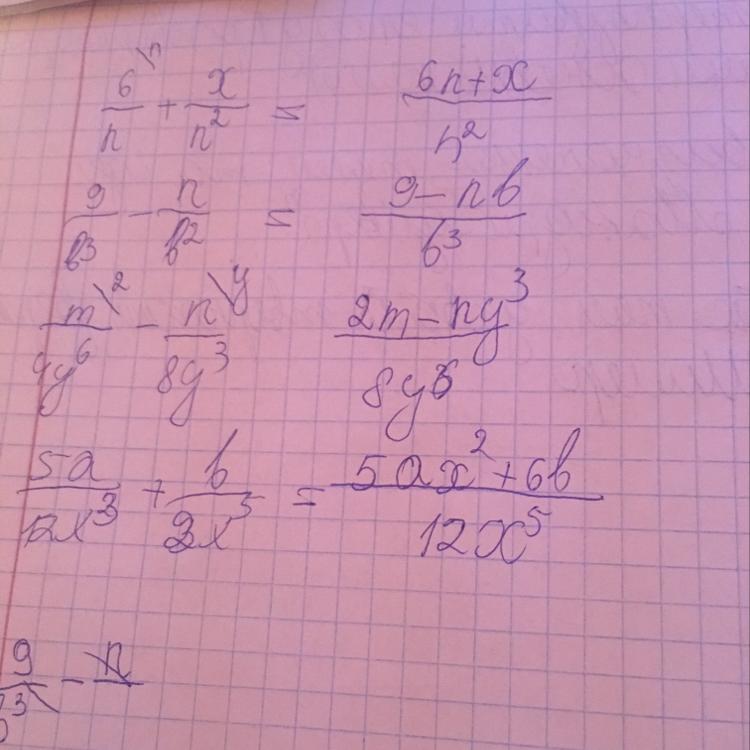 6/n \n + x/n² = (6n+x)/n²
9/b³ - n/b² = (9-nb)/b³
m/4y⁶ \2 - n/8y³ \y (2m-ny³)/8y⁶
5a/12x³ + b/2x⁵ = (5ax²+6b)/12x⁵
9/b³ - n